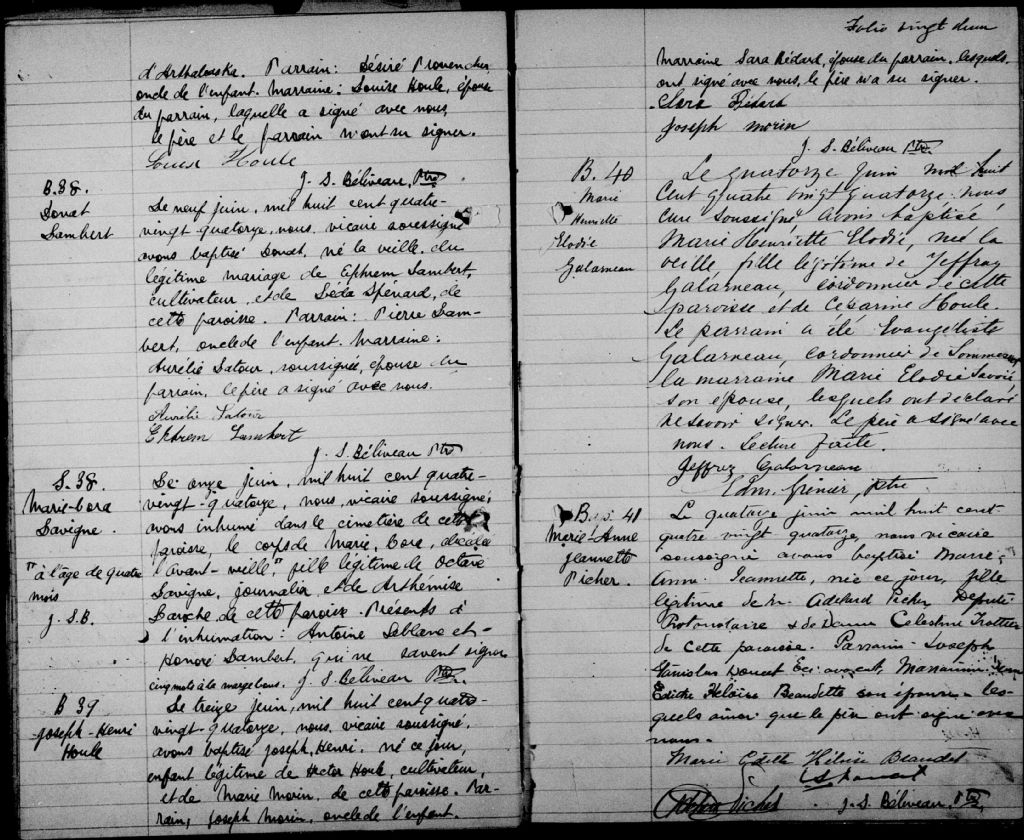 d'Arthabaska. Parrain: Désiré Provencher
oncle de l'enfant. Marraine: Louise Houle, épouse
du parrain, laquelle a signé avec nous,
le père et le parrain n'ont su signer.
Louise Houle
J. S. Béliveau, Ptre
B. 38.
Donat
Lambert
Le neuf juin, mil huit cent quatre-
vingt-quatorze, nous, vicaire soussigné
avons baptisé Donat, né la veille, du
légitime mariage de Ephrem Lambert,
cultivateur, et de Léda Spénard, de
cette paroisse. Parrain: Pierre Lam-
bert, oncle de l'enfant. Marraine:
Aurélie Latour, soussignée, épouse du
parrain, le père a signé avec nous.
Aurélie Latour
Ephrem Lambert
J. S. Béliveau Ptre
S. 38.
Marie-Cora
Lavigne.
"à l'âge de quatre
mois
J. S. B.
Le onze juin, mil huit cent quatre-
vingt-quatorze, nous, vicaire soussigné,
avons inhumé dans le cimetière de cette
paroisse, le corps de Marie, Cora, décédée
l'avant-veille," fille légitime de Octave
Lavigne, journalier, et de Arthémise
Laroche de cette paroisse. Présents à
l'inhumation: Antoine Leblanc et
Honoré Lambert, qui ne savent signer
cinq mots à la marge bons. J. S. Béliveau Ptre.
B 39
Joseph-Henri
Houle
Le treize juin, mil huit cent quatre-
vingt-quatorze, nous, vicaire soussigné,
avons baptisé Joseph, Henri, né ce jour,
enfant légitime de Hector Houle, cultivateur,
et de Marie Morin, de cette paroisse. Par-
rain, Joseph Morin, oncle de l'enfant.
Folio vingt deux
Marraine Sara Bédard, épouse du parrain, lesquels
ont signé avec nous, le père n'a su signer.
Clara Bédard
Joseph Morin
J. S. Béliveau Ptre
B. 40
Marie
Henriette
Elodie
Galarneau
Le quatorze Juin mil huit
cent quatre vingt quatorze, nous
curé soussigné avons baptisé
Marie Henriette Elodie, née la
veille, fille légitime de Jeffrey
Galarneau, cordonnier de cette
paroisse et de Césarine Houle.
Le parrain a été Evangéliste
Galarneau, cordonnier de Sommerset
la marraine Marie Elodie Savoie,
son épouse, lesquels ont déclaré
ne savoir signer. Le père a signé avec
nous. Lecture faite.
Jeffrey Galarneau
Edm. Grenier, ptre
B. 41
Marie-Anne
Jeannette
Picher.
Le quatorze juin mil huit cent
quatre vingt quatorze, nous vicaire
soussigné avons baptisé Marie-
Anne Jeannette, née ce jour, fille
légitime de M. Adélard Picher, Député
Protonotaire & de Dame Célestine Trottier
de cette paroisse. Parrain Joseph
Stanislas Doucet Ecr. avocat, Marraine
Edith Héloise Beaudette son épouse, les-
quels ainsi que le père ont signé avec
nous.
Marie Edith Héloise Beaudet
J. S. Béliveau, Ptre